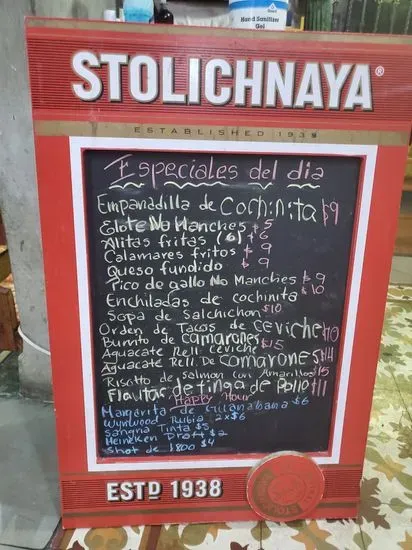 Hand Sanitizer
Gel
STOLICHNAYA®
ESTABLISHED 1938
Especiales del dia
Empanadilla de Cochinita $9
Elote No Manches $5
Alitas fritas (6) $6
Calamares fritos $9
Queso fundido $9
Pico de gallo No Manches $9
Enchiladas de cochinita $10
Sopa de Salchichon $10
Orden de Tacos de ceviche $10
Burrito de camarones $15
Aguacate Rell. ceviche
Aguacate Rell. De camarones $14
Risotto de salmon con Amarillos $15
Flautas de tinga de Pollo $11
Happy Hour
Margarita de Guanabana $6
Wynwood Rubia 2x$6
Sangria Tinta $5
Heineken Draft $2
Shot de 1800 $4
ESTD 1938